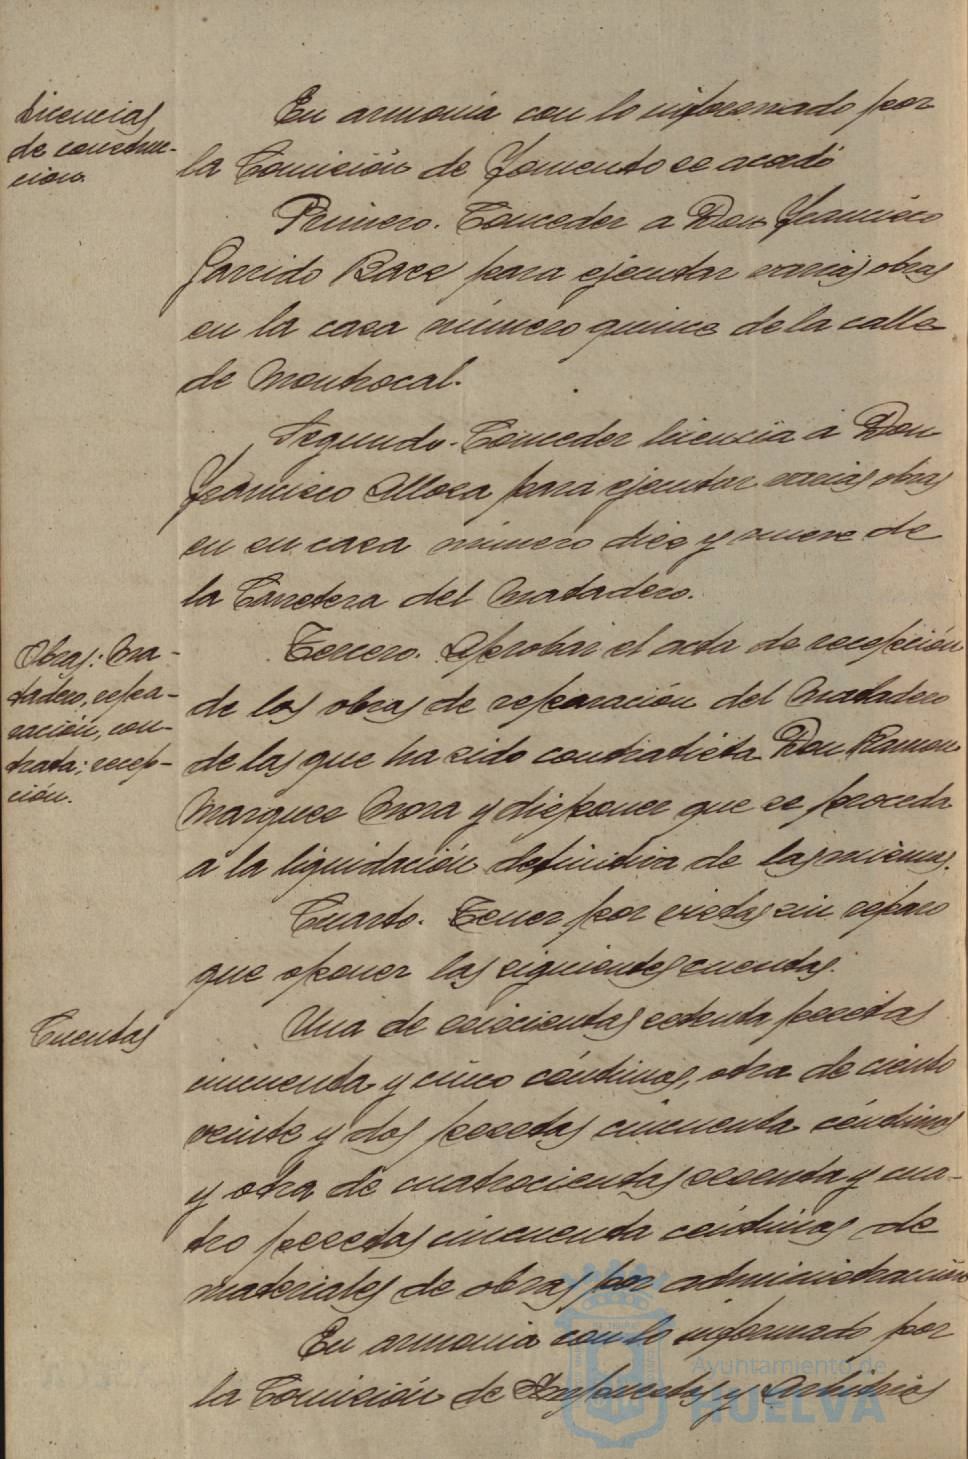 Licencias
de construc-
cion.
En armonia con lo informado por
la Comisión de Fomento se acordó
Primero. Conceder a Don Francisco
Garrido para ejecutar varias obras
en la casa número quince de la calle
de Montrocal.
Segundo. Conceder licencia a Don
Francisco Allosa para ejecutar varias obras
en su casa número diez y nueve de
la Carretera del Matadero.
Obras: Ma-
tadero, repa-
ración, con-
trata; recep-
ción.
Tercero. Aprobar el acta de recepción
de las obras de reparación del Matadero
de las que ha sido contratista Don Ramon
Marquez Mora y disponer que se proceda
a la liquidación definitiva de las mismas.
Cuarto. Tener por vistas sin reparo
que oponer las siguientes cuentas.
Cuentas
Una de seiscientas setenta pesetas
cincuenta y cinco céntimos, otra de ciento
veinte y dos pesetas cincuenta céntimos
y otra de cuatrocientas sesenta y cua-
tro pesetas cincuenta céntimos de
materiales de obras por administración
En armonia con lo informado por
la Comisión de Impuestos y Arbitrios
Ayuntamiento de
HUELVA